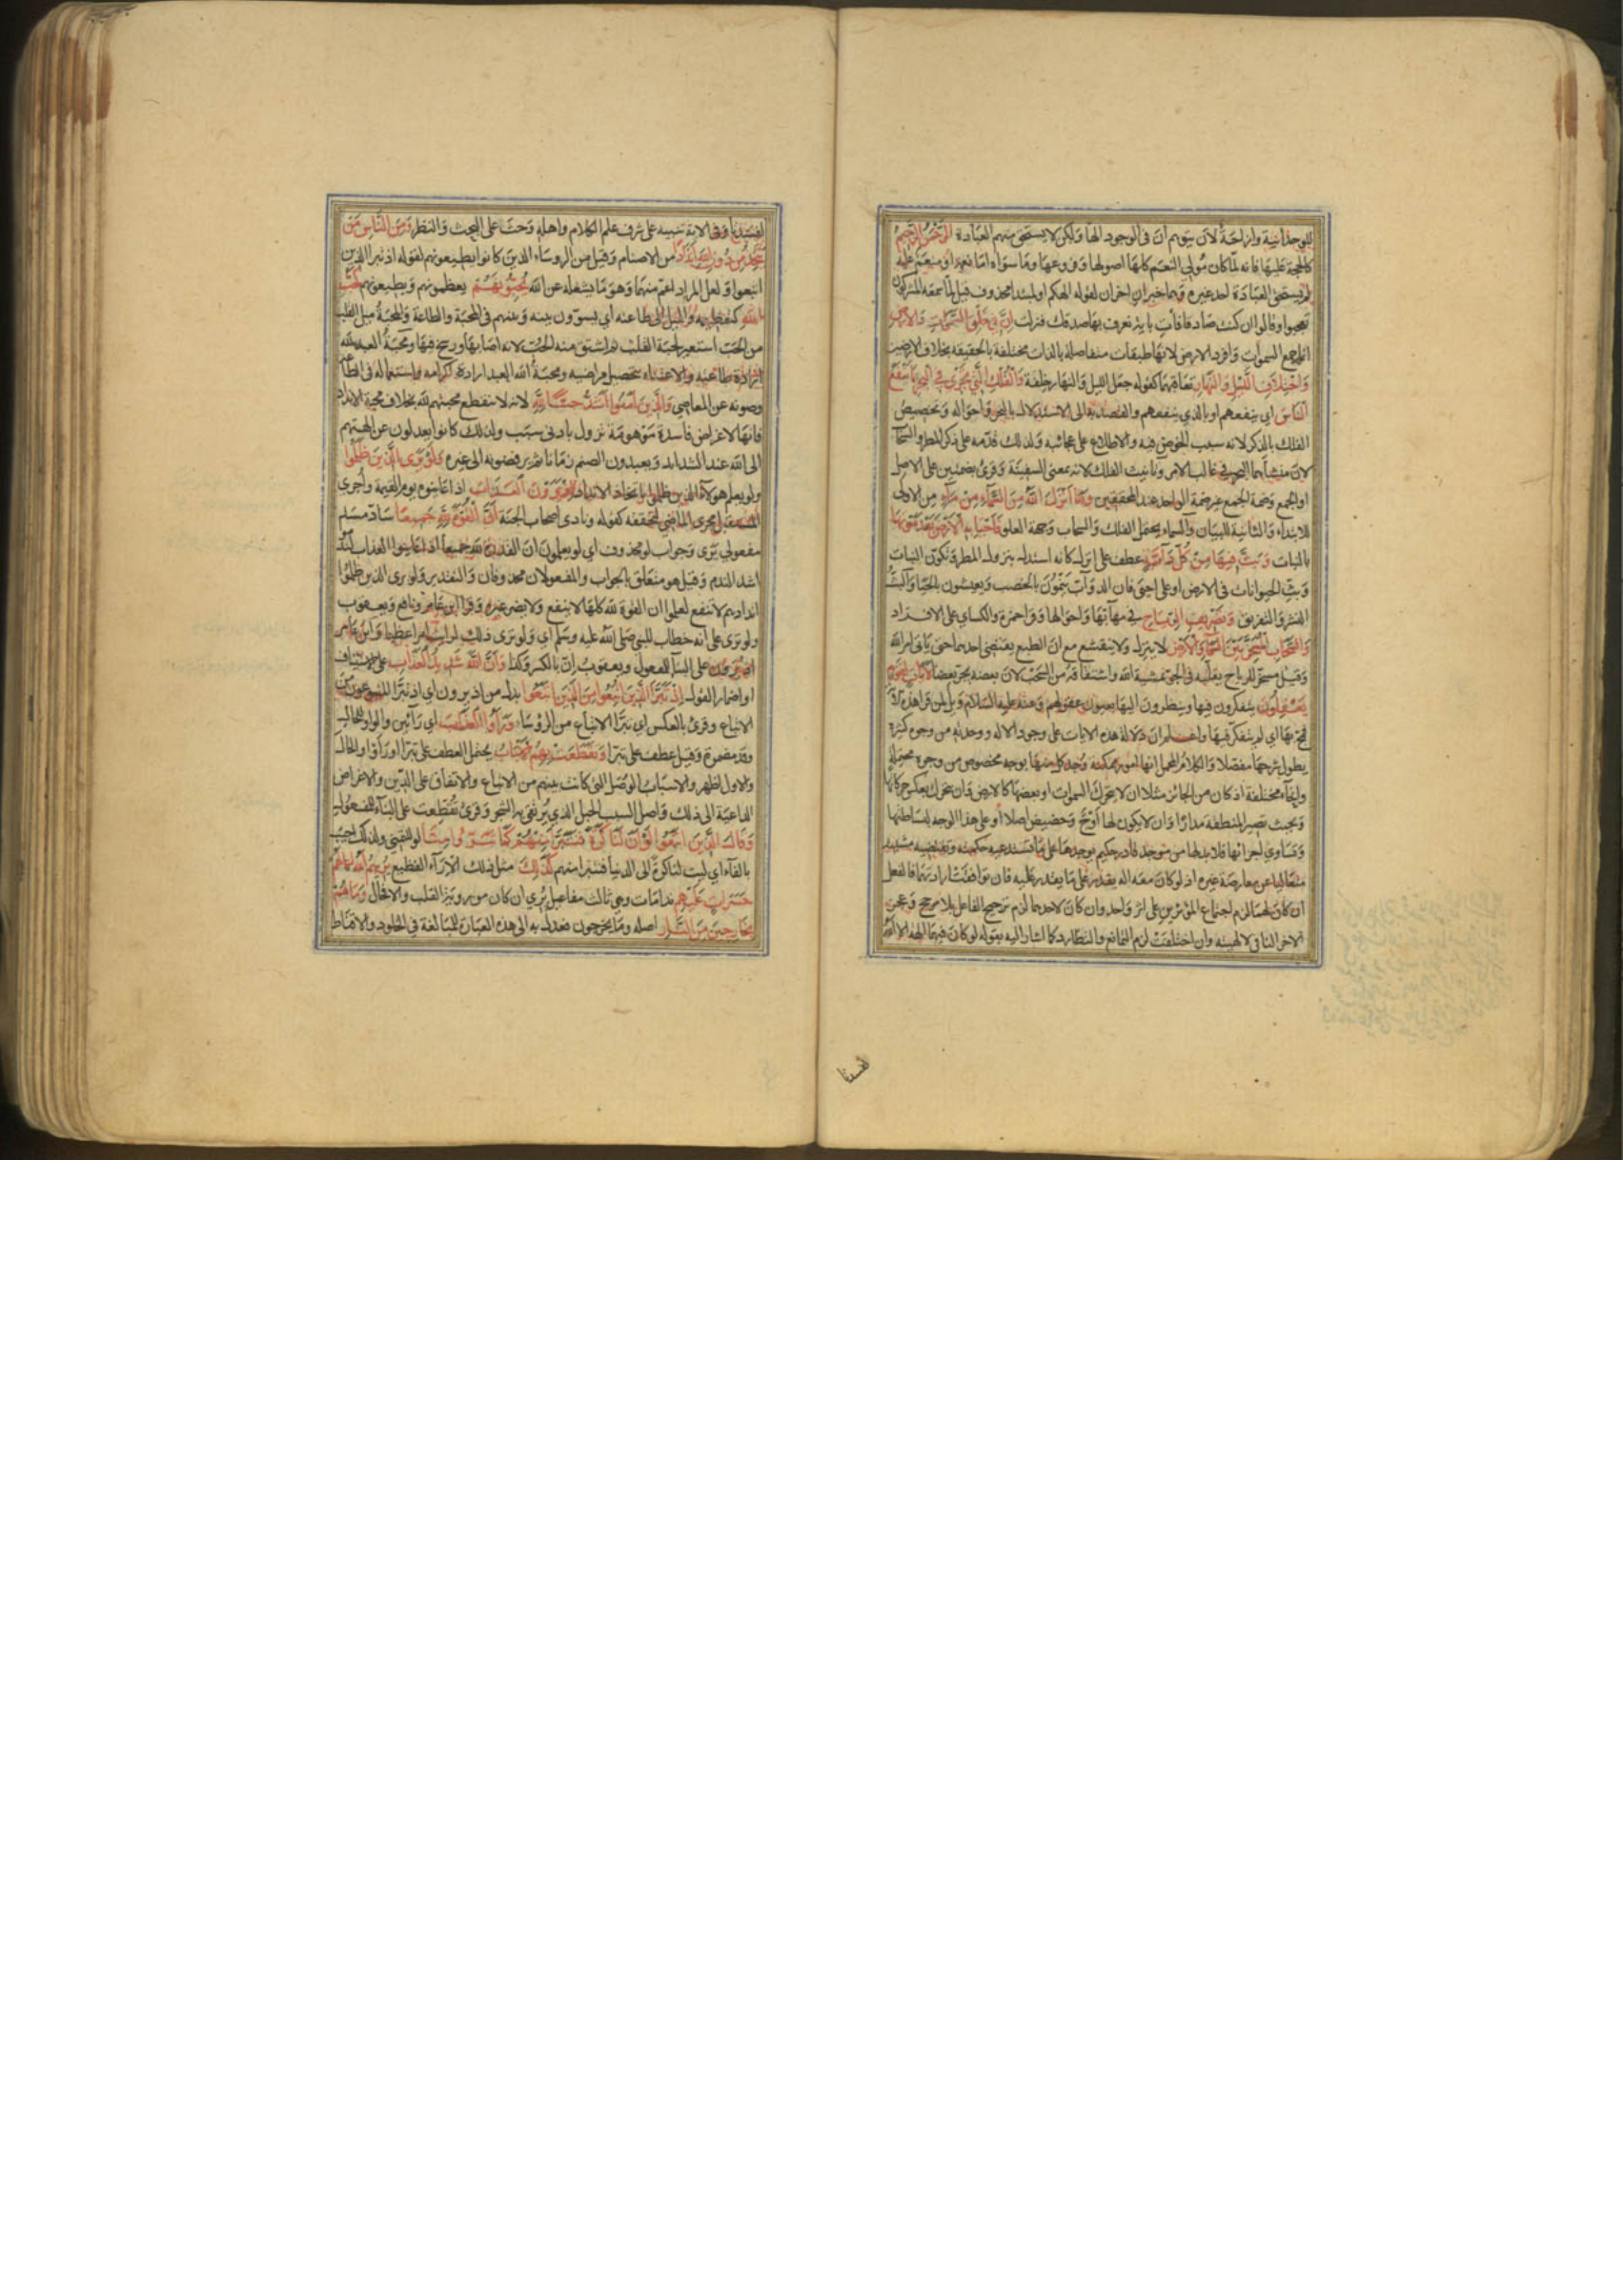 للوحدانية وازاحة لان يتوهم ان في الوجود الها ولكن لا يستحق منهم العبادة الرحمن الرحيم
كالحجة عليها فانه لما كان مولي النعم كلها اصولها وفروعها وما سواه اما نعمة او منعم عليه
لم يستحق العبادة احد غيره وهما خبران اخران لقوله الهكم او لمبتدا محذوف قيل لما سمعه المشركون
تعجبوا وقالوا ان كنت صادقا فأت باية نعرف بها صدقك فنزلت ان في خلق السموات والارض
انما جمع السموات وافرد الارض لانها طبقات متفاصلة بالذات مختلفة بالحقيقة بخلاف الارضين
واختلاف الليل والنهار تعاقبهما كقوله جعل الليل والنهار خلفة والفلك التي تجري في البحر بما ينفع
الناس اي ينفعهم او بالذي ينفعهم والقصد به الى الاستدلال بالبحر واحواله وتخصيص
الفلك بالذكر لانه سبب الخوض فيه والاطلاع على عجائبه ولذلك قدمه على ذكر المطر والسحاب
لان منشأهما البحر في غالب الامر وتانيث الفلك لانه بمعنى السفينة وقرئ بضمتين على الاصل
او الجمع وضمة الجمع غير ضمة الواحد عند المحققين وما انزل الله من السماء من ماء من الاولى
للابتداء والثانية للبيان والسماء يحتمل الفلك والسحاب وجهة العلو فاحيا به الارض بعد موتها
بالنبات وبث فيها من كل دابة عطف على انزل كانه استدل بنزول المطر وتكون النبات
وبث الحيوانات في الارض او على احيى فان الدواب ينمون بالخصب ويعيشون بالحيا والبث
النشر والتفريق وتصريف الرياح في مهابها واحوالها وقرا حمزة والكساي على الافراد
والسحاب المسخر بين السماء والارض لا ينزل ولا ينقشع مع ان الطبع يقتضي احدهما حتى ياتي امر الله
وقيل مسخر للرياح يقلبه في الجو بمشية الله واشتقاقه من السحب لان بعضه يجر بعضا لايات لقوم
يعقلون يتفكرون فيها وينظرون اليها بعيون عقولهم وعنه عليه السلام ويل لمن قرا هذه الاية
فمج بها اي لم يتفكر فيها واعلم ان دلالة هذه الايات على وجود الاله ووحدته من وجوه كثيرة
يطول شرحها مفصلا والكلام المجمل انها امور ممكنة وجد كل منها بوجه مخصوص من وجوه محتملة
وانحاء مختلفة اذ كان من الجائز مثلا ان لا يتحرك السموات او بعضها كالارض وان يتحرك بعكس حركاتها
وبحيث تصير المنطقة مدارا وان لا يكون لها اوج وحضيض اصلا او على هذا الوجه لبساطتها
وتساوي اجزائها فلا بد لها من موجد قادر حكيم يوجدها على ما تستدعيه حكمته وتقتضيه مشيته
متعاليا عن معارضة غيره اذ لو كان معه اله يقدر على ما يقدر عليه فان توافقت ارادتهما فالفعل
ان كان لهما لزم اجتماع المؤثرين على اثر واحد وان كان لاحدهما لزم ترجيح الفاعل بلا مرجح وعجز
الاخر المنافي لالهيته وان اختلفت لزم التمانع والتطارد كما اشار اليه بقوله لو كان فيهما الهة الا الله
لفسدتا
لفسدتا وفي الاية تنبيه على شرف علم الكلام واهله وحث على البحث والنظر ومن الناس من
يتخذ من دون الله اندادا من الاصنام وقيل من الروساء الذين كانوا يطيعونهم لقوله اذ تبرا الذين
اتبعوا ولعل المراد اعم منهما وهو ما يشغله عن الله يحبونهم يعظمونهم ويطيعونهم كحب
الله كتعظيمه والميل الى طاعته أي يسوون بينه وبينهم في المحبة والطاعة والمحبة ميل القلب
من الحب استعير لحبة القلب ثم اشتق منه الحب لانه اصابها ورسخ فيها ومحبة العبد لله
ارادة طاعته والاعتناء بتحصيل مراضيه ومحبة الله العبد ارادة كرامه واستعماله في الطاعة
وصونه عن المعاصي والذين امنوا اشد حبا لله لانه لا تنقطع محبتهم لله بخلاف محبة الانداد
فانها لاغراض فاسدة موهومة تزول بادنى سبب ولذلك كانوا يعدلون عن الهتهم
الى الله عند الشدايد ويعبدون الصنم زمانا ثم يرفضونه الى غيره ولو يرى الذين ظلموا
ولو يعلم هولاء الذين ظلموا باتخاذ الانداد اذ يرون العذاب اذا عاينوه يوم القيمة واجري
المستقبل مجرى الماضي لتحققه كقوله ونادى اصحاب الجنة أن القوة لله جميعا ساد مسد
مفعولي يرى وجواب لو محذوف اي لو يعلمون ان القدرة لله جميعا اذ عاينوا العذاب لندموا
اشد الندم وقيل هو متعلق بالجواب والمفعولان محذوفان والتقدير ولو يرى الذين ظلموا
اندادهم لا تنفع لعلموا ان القوة لله كلها لا ينفع ولا يضر غيره وقرا ابن عامر ونافع ويعقوب
ولو ترى على انه خطاب للنبي صلى الله عليه وسلم اي ولو ترى ذلك لرايت امرا عظيما وابن عامر
اذ يرون على البناء للمفعول ويعقوب ان بالكسر وكذا وان الله شديد العذاب على الاستيناف
او اضمار القول اذ تبرا الذين اتبعوا من الذين اتبعوا بدل من اذ يرون اي اذ تبرا المتبوعون من
الاتباع وقرئ بالعكس اي تبرا الاتباع من الرؤساء وراوا العذاب اي رائين والواو للحال
وقد مضمرة وقيل عطف على تبرا وتقطعت بهم الاسباب يحتمل العطف على تبرا او راوا والحال
والاول اظهر والاسباب الوصل التي كانت بينهم من الاتباع والاتفاق على الدين والاغراض
الداعية الى ذلك واصل السبب الحبل الذي يرتقى به الشجر وقرئ تقطعت على البناء للمفعول
وقال الذين اتبعوا لو ان لنا كرة فنتبرا منهم كما تبروا منا لو للتمني ولذلك اجيب
بالفاء اي ليت لنا كرة الى الدنيا فنتبرا منهم كذلك مثل ذلك الاراء الفظيع يريهم الله اعمالهم
حسرات عليهم ندامات وهي ثالث مفاعيل يري ان كان من روية القلب والا فحال وما هم
بخارجين من النار اصله وما يخرجون فعدل به الى هذه العبارة للمبالغة في الخلود والاقناط